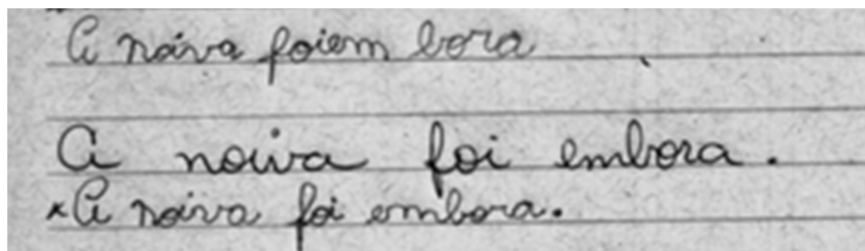 A noiva foiem bora
A noiva foi embora.
x A noiva foi embora.